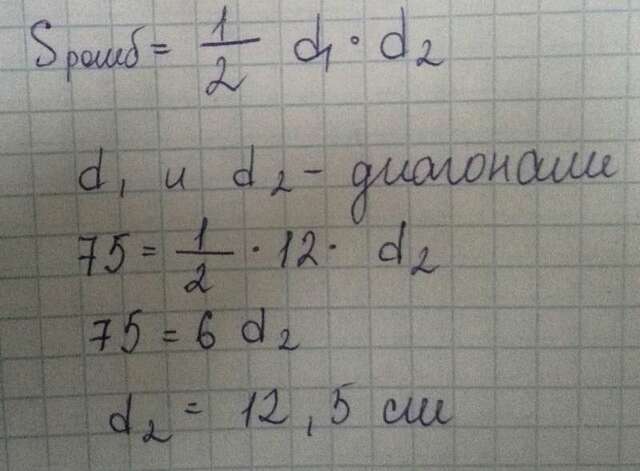 Sромб = 1/2 d₁ · d₂
d₁ и d₂ - диагонали
75 = 1/2 · 12 · d₂
75 = 6 d₂
d₂ = 12,5 см